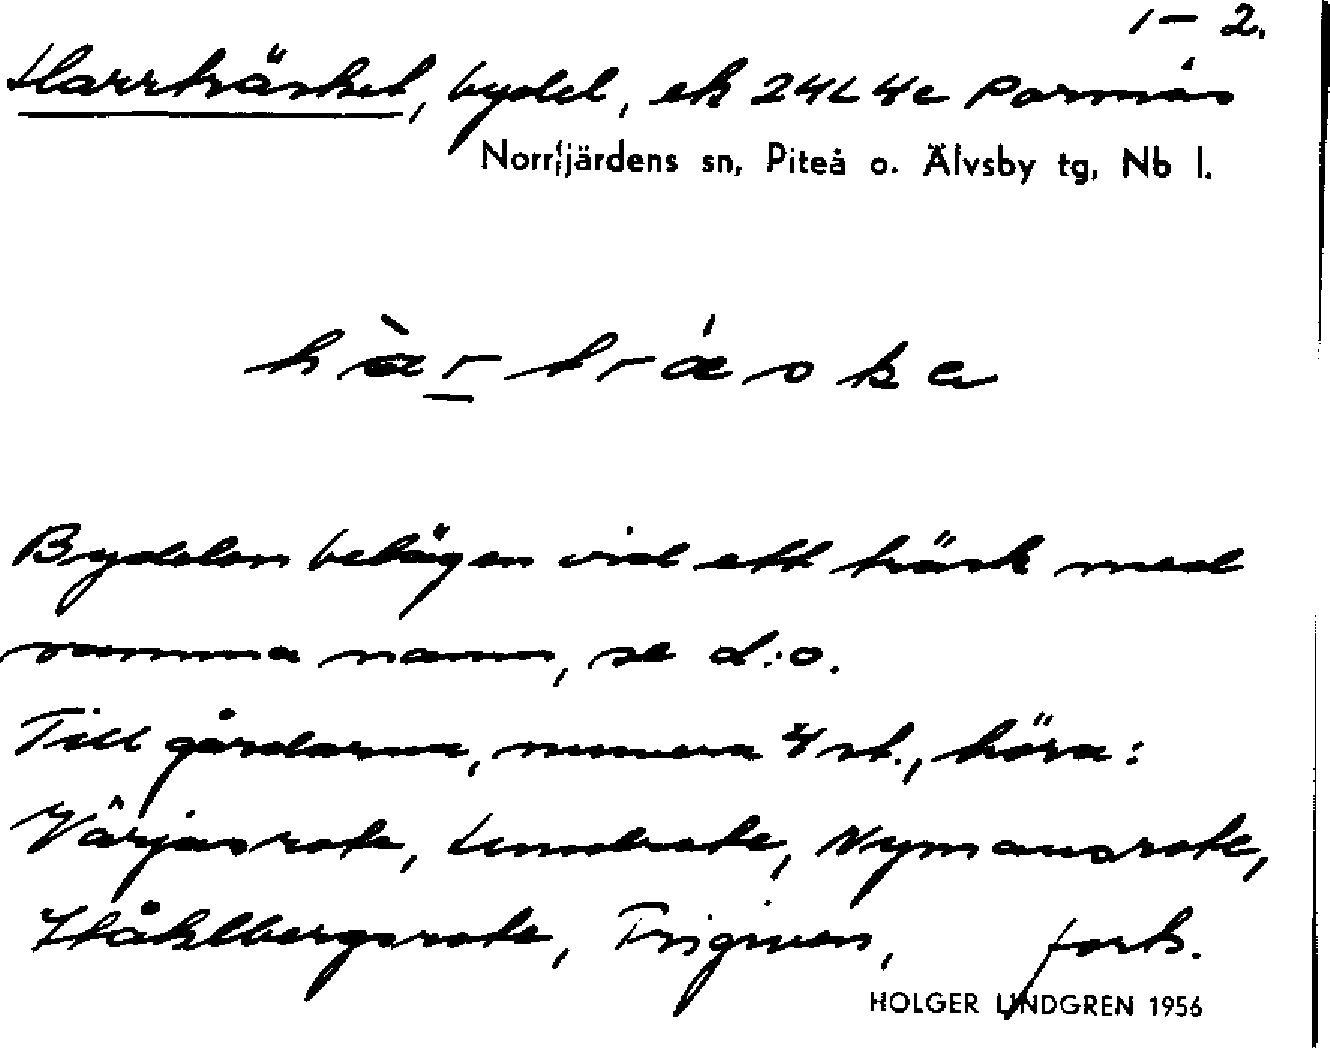 1-2.
Harrträsket, bydel, ek 24L4c Pormnäs
Norrfjärdens sn, Piteå o. Älvsby tg, Nb l.
hàrtráeske
Bydelen belägen vid ett träsk med
samma namn, se d:o.
Till gårdarna, numera 4 st., höra:
Värjasrote, Lundrote, Nymansrote,
Ståhlbergsrote, Trigiven, forts.
HOLGER LINDGREN 1956